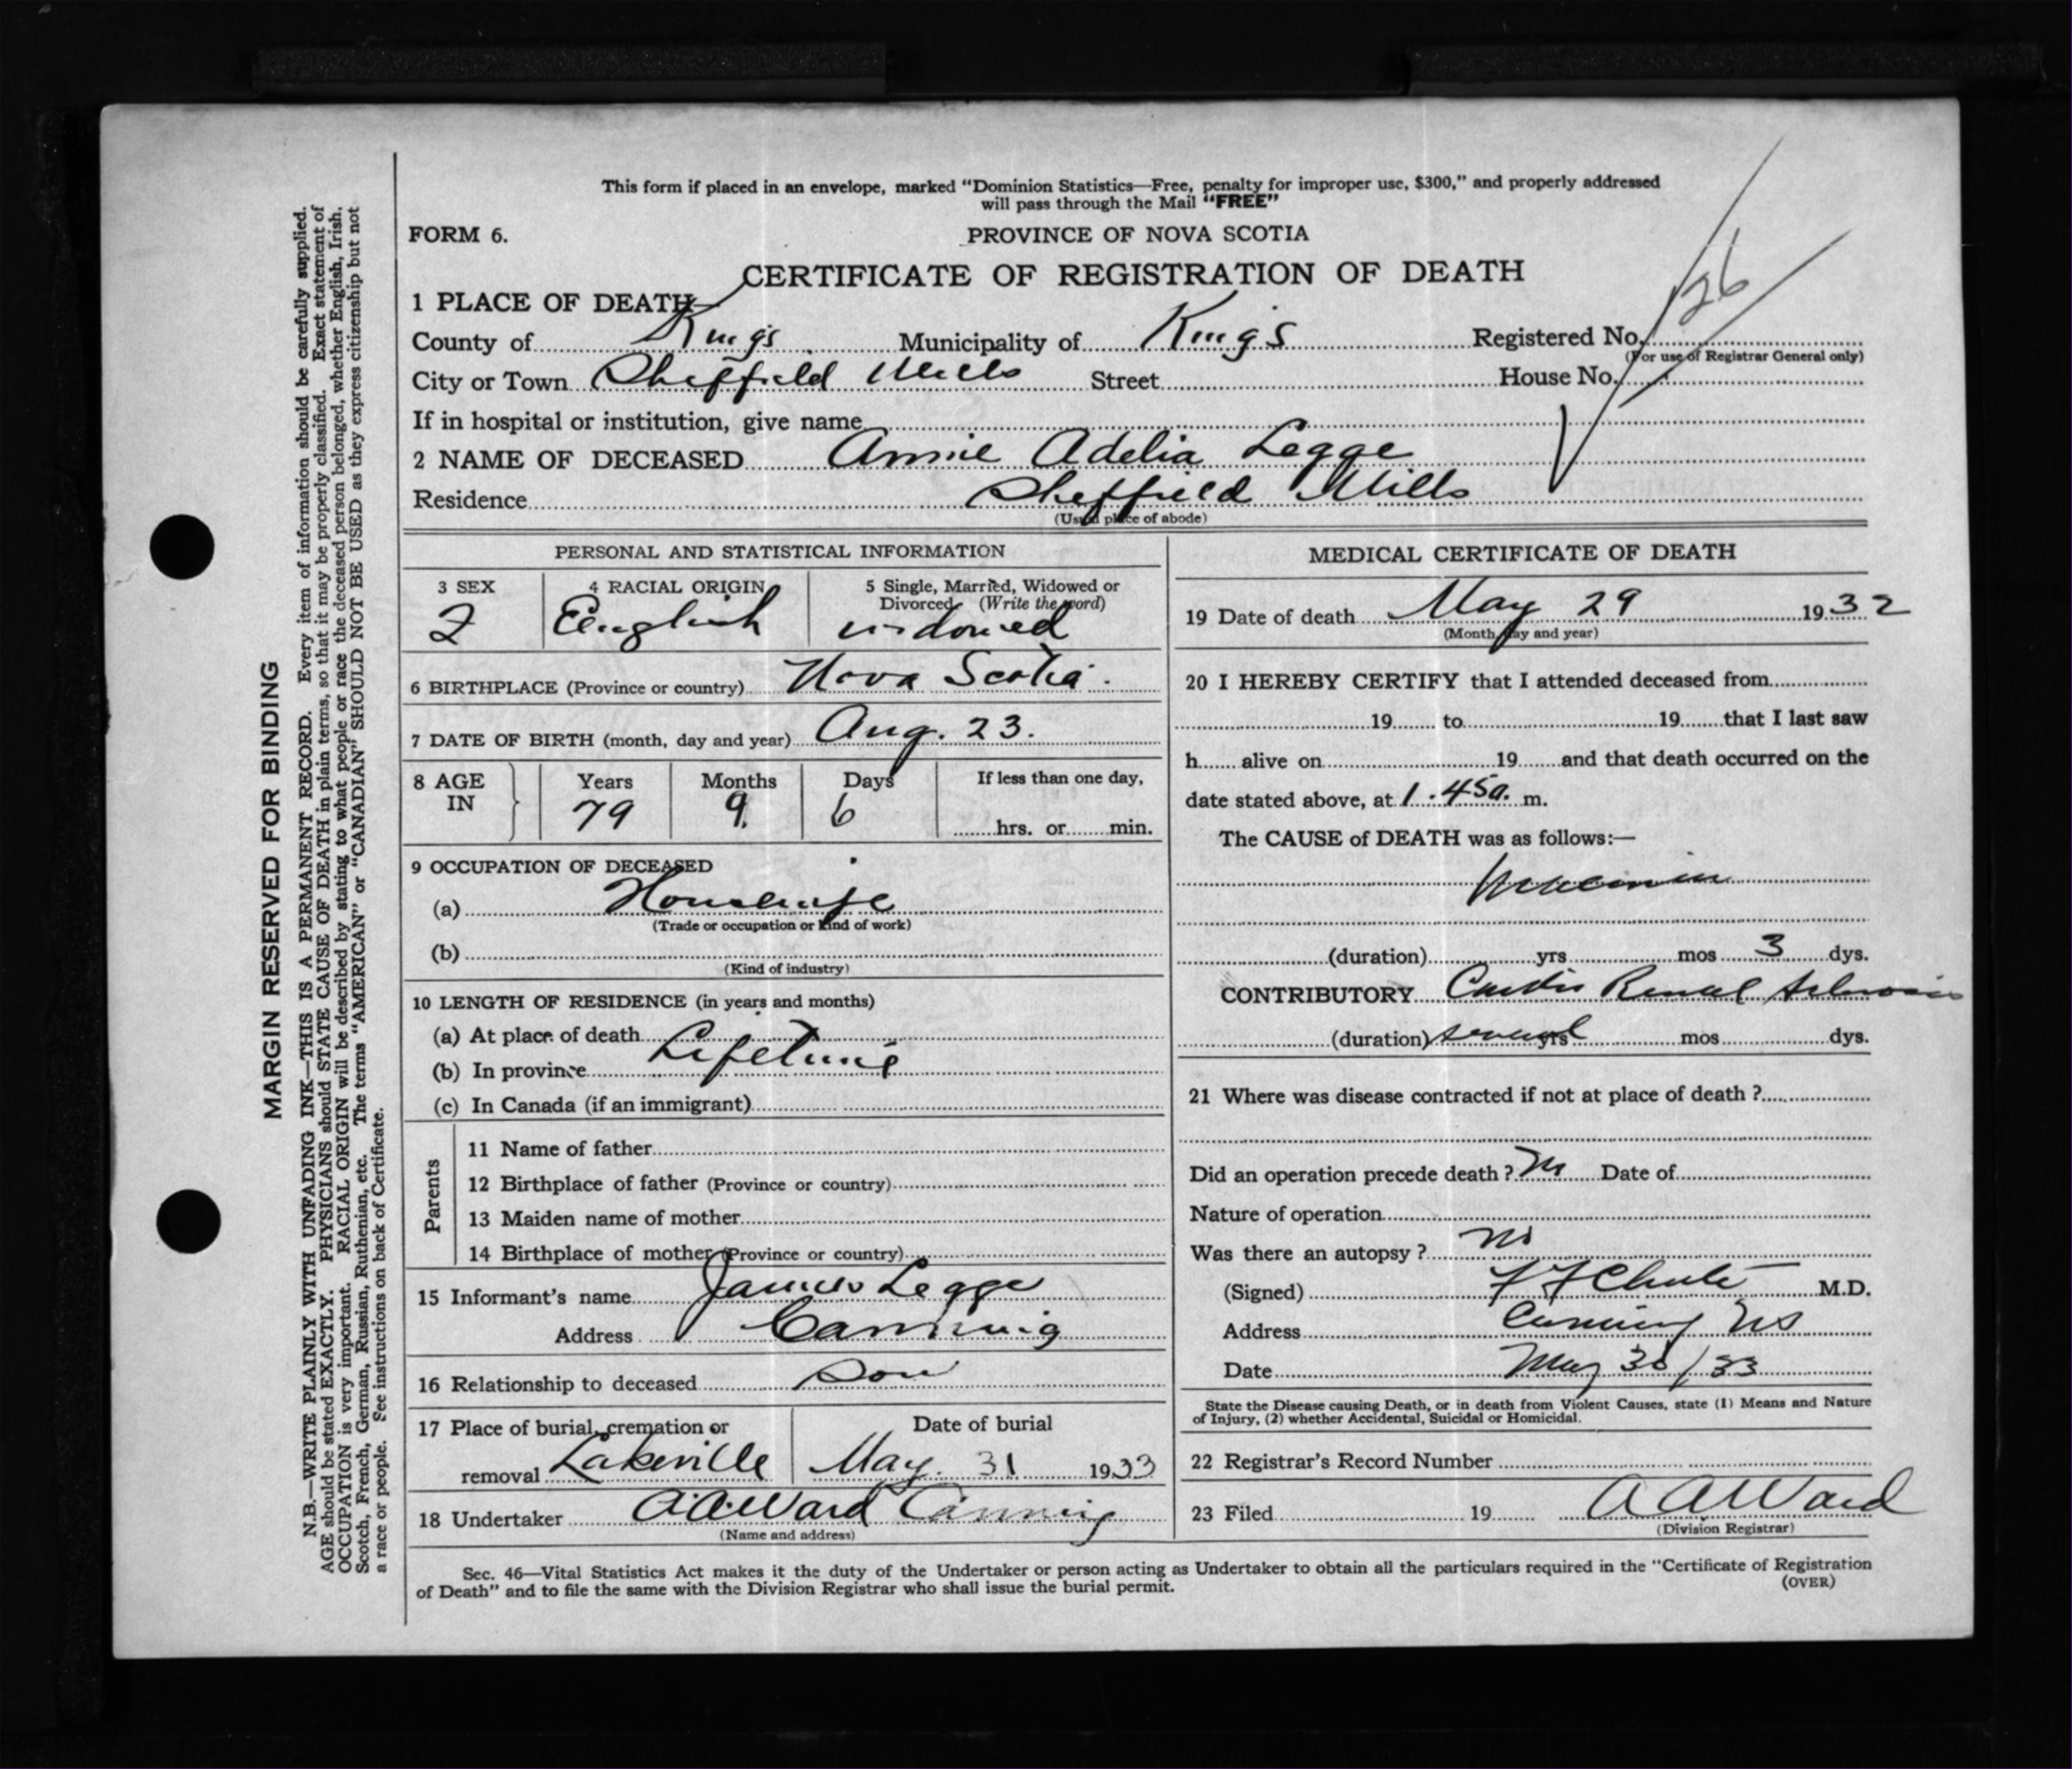 This form if placed in an envelope, marked “Dominion Statistics—Free, penalty for improper use, $300,” and properly addressed
will pass through the Mail “FREE”
FORM 6.
PROVINCE OF NOVA SCOTIA
CERTIFICATE OF REGISTRATION OF DEATH
1 PLACE OF DEATH—
County of Kings Municipality of Kings Registered No. 126
(For use of Registrar General only)
City or Town Sheffield Mills Street House No.
If in hospital or institution, give name
2 NAME OF DECEASED Annie Adelia Legge
Residence Sheffield Mills
(Usual place of abode)
PERSONAL AND STATISTICAL INFORMATION
3 SEX 4 RACIAL ORIGIN 5 Single, Married, Widowed or
Divorced (Write the word)
English widowed
6 BIRTHPLACE (Province or country) Nova Scotia.
7 DATE OF BIRTH (month, day and year) Aug. 23.
8 AGE Years Months Days If less than one day,
IN 79 9 6 hrs. or min.
9 OCCUPATION OF DECEASED
(a) Housewife
(Trade or occupation or kind of work)
(b)
(Kind of industry)
10 LENGTH OF RESIDENCE (in years and months)
(a) At place of death
(b) In province Lifetime
(c) In Canada (if an immigrant)
Parents
11 Name of father
12 Birthplace of father (Province or country)
13 Maiden name of mother
14 Birthplace of mother (Province or country)
15 Informant's name James Legge
Address Canning
16 Relationship to deceased Son
17 Place of burial, cremation or Date of burial
removal Lakeville May. 31 1933
18 Undertaker A.A. Ward Canning
(Name and address)
MEDICAL CERTIFICATE OF DEATH
19 Date of death May 29 1932
(Month, day and year)
20 I HEREBY CERTIFY that I attended deceased from
19 to 19 that I last saw
h alive on 19 and that death occurred on the
date stated above, at 1.45a. m.
The CAUSE of DEATH was as follows:—
(duration) yrs mos 3 dys.
CONTRIBUTORY Cardio Renal Sclerosis
(duration) several yrs mos dys.
21 Where was disease contracted if not at place of death ?
Did an operation precede death ? No Date of
Nature of operation
Was there an autopsy ? No
(Signed) F F Chute M.D.
Address Canning NS
Date May 30/33
State the Disease causing Death, or in death from Violent Causes, state (1) Means and Nature
of Injury, (2) whether Accidental, Suicidal or Homicidal.
22 Registrar's Record Number
23 Filed 19 A A Ward
(Division Registrar)
Sec. 46—Vital Statistics Act makes it the duty of the Undertaker or person acting as Undertaker to obtain all the particulars required in the “Certificate of Registration
of Death” and to file the same with the Division Registrar who shall issue the burial permit.
(OVER)
MARGIN RESERVED FOR BINDING
N.B.—WRITE PLAINLY WITH UNFADING INK—THIS IS A PERMANENT RECORD. Every item of information should be carefully supplied.
AGE should be stated EXACTLY. PHYSICIANS should STATE CAUSE OF DEATH in plain terms, so that it may be properly classified. Exact statement of
OCCUPATION is very important. RACIAL ORIGIN will be described by stating to what people or race the deceased person belonged, whether English, Irish,
Scotch, French, German, Russian, Ruthenian, etc. The terms “AMERICAN” or “CANADIAN” SHOULD NOT BE USED as they express citizenship but not
a race or people. See instructions on back of Certificate.